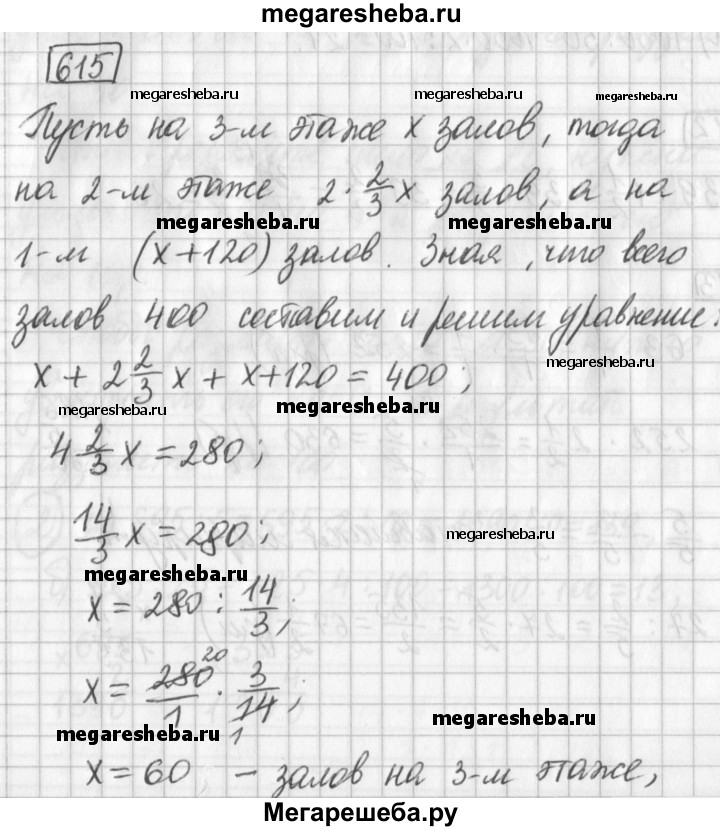 megaresheba.ru
615
megaresheba.ru megaresheba.ru megaresheba.ru
Пусть на 3-м этаже x залов, тогда
на 2-м этаже 2 · 2/3 x залов, а на
megaresheba.ru megaresheba.ru
1-м (x+120) залов. Зная, что всего
залов 400 составим и решим уравнение:
megaresheba.ru
x + 2 2/3 x + x+120 = 400;
megaresheba.ru megaresheba.ru
4 2/3 x = 280;
14/3 x = 280;
megaresheba.ru
megaresheba.ru
x = 280 : 14/3;
x = 280/1 · 3/14;
20
1
megaresheba.ru megaresheba.ru
x = 60 – залов на 3-м этаже,
Мегарешеба.ру